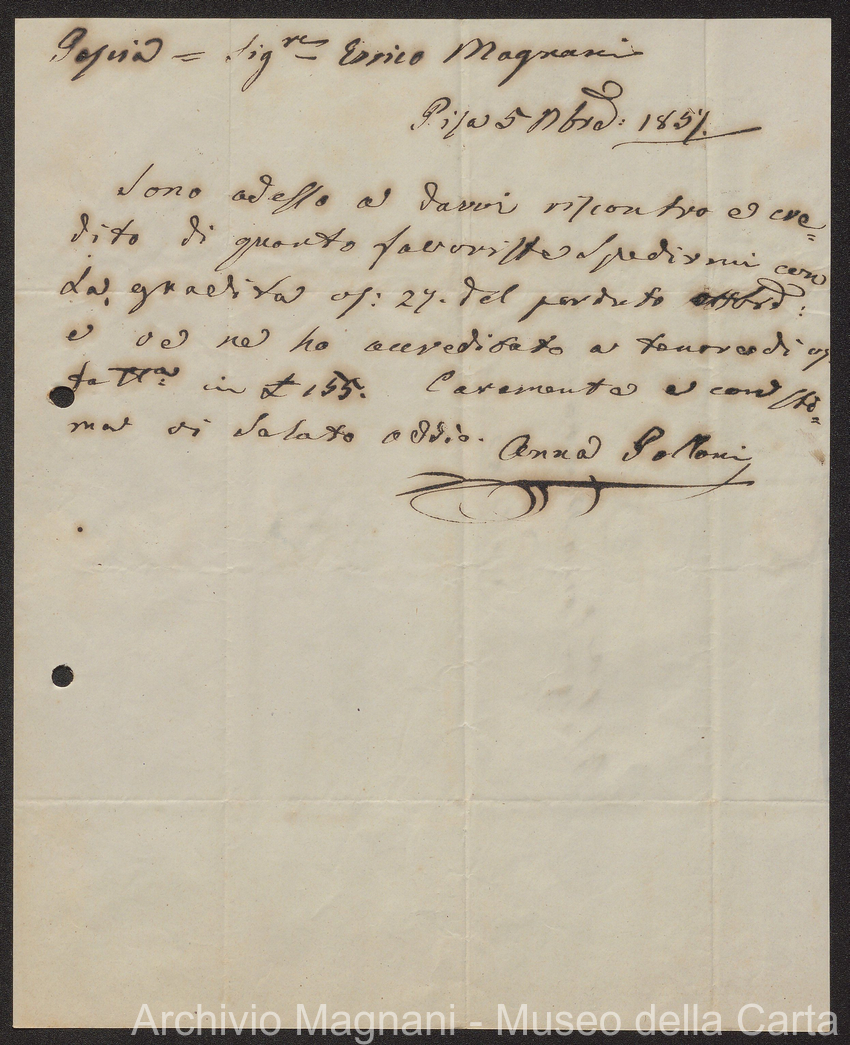 Pescia = Sig.re Enrico Magnani
Pisa 5 Nbre: 1857.
Sono adesso a darvi riscontro e cre=
dito di quanto favoriste spedirmi con
La gradita vs: 27. del perduto ottbre:
e ve ne ho accreditato a tenore di vs
fa in £ 155. Caramente e con sti=
ma vi saluto addio.
Anna Polloni
Archivio Magnani - Museo della Carta